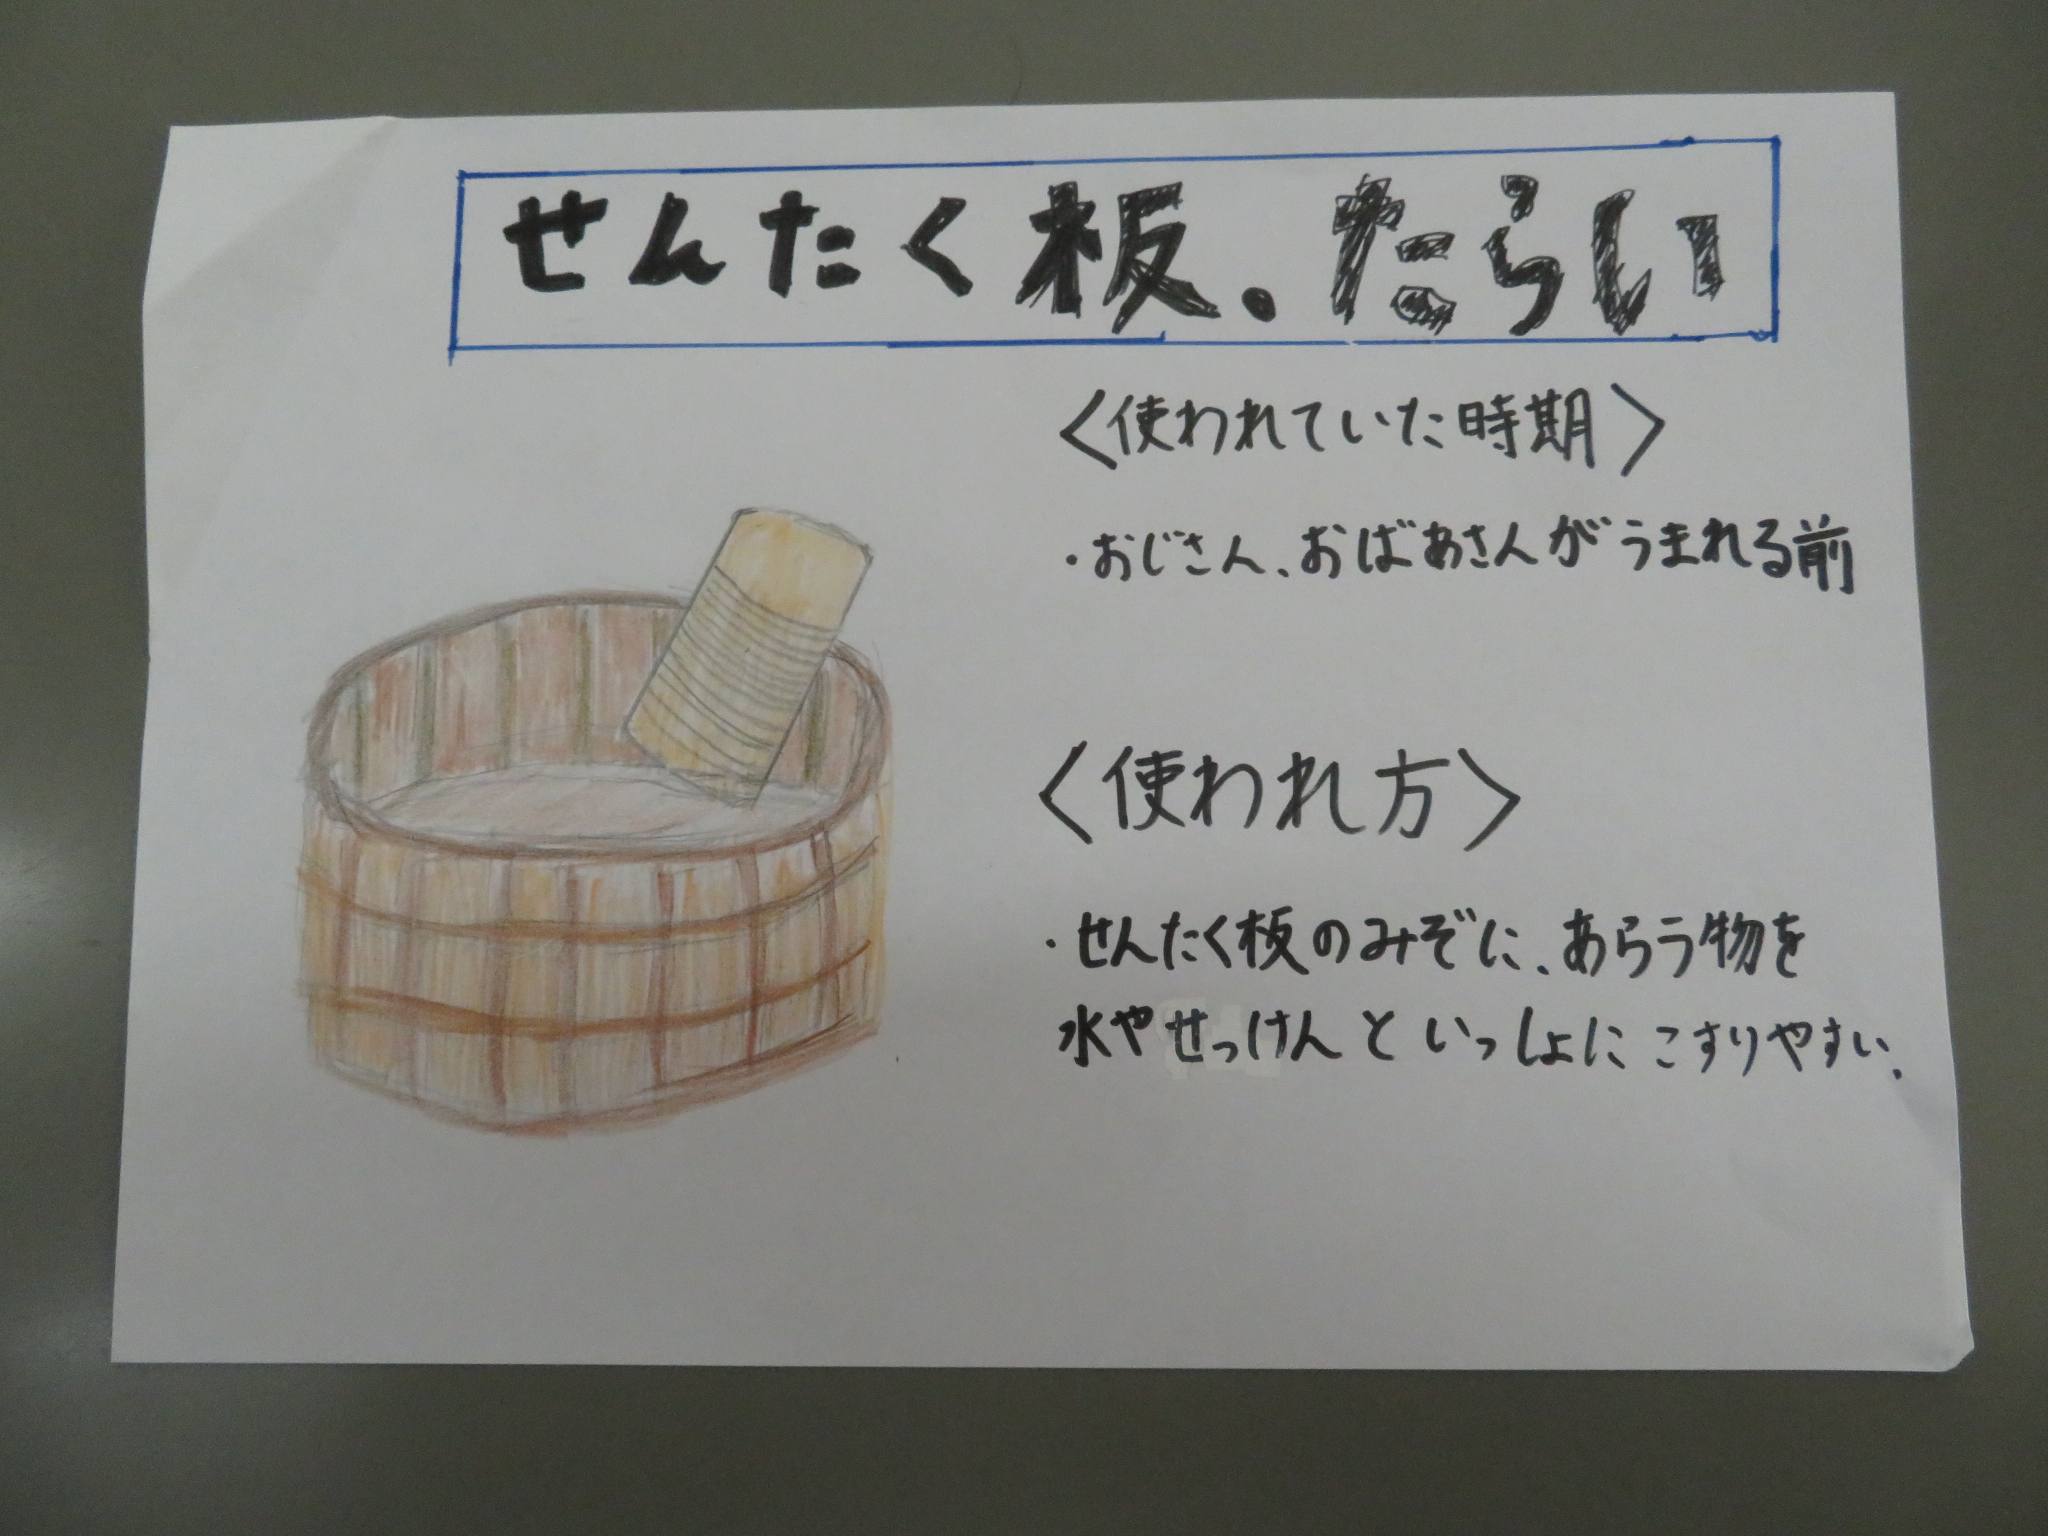 せんたく板・たらい
〈使われていた時期〉
・おじさん、おばあさんがうまれる前
〈使われ方〉
・せんたく板のみぞに、あらう物を
水やせっけんといっしょにこすりやすい.